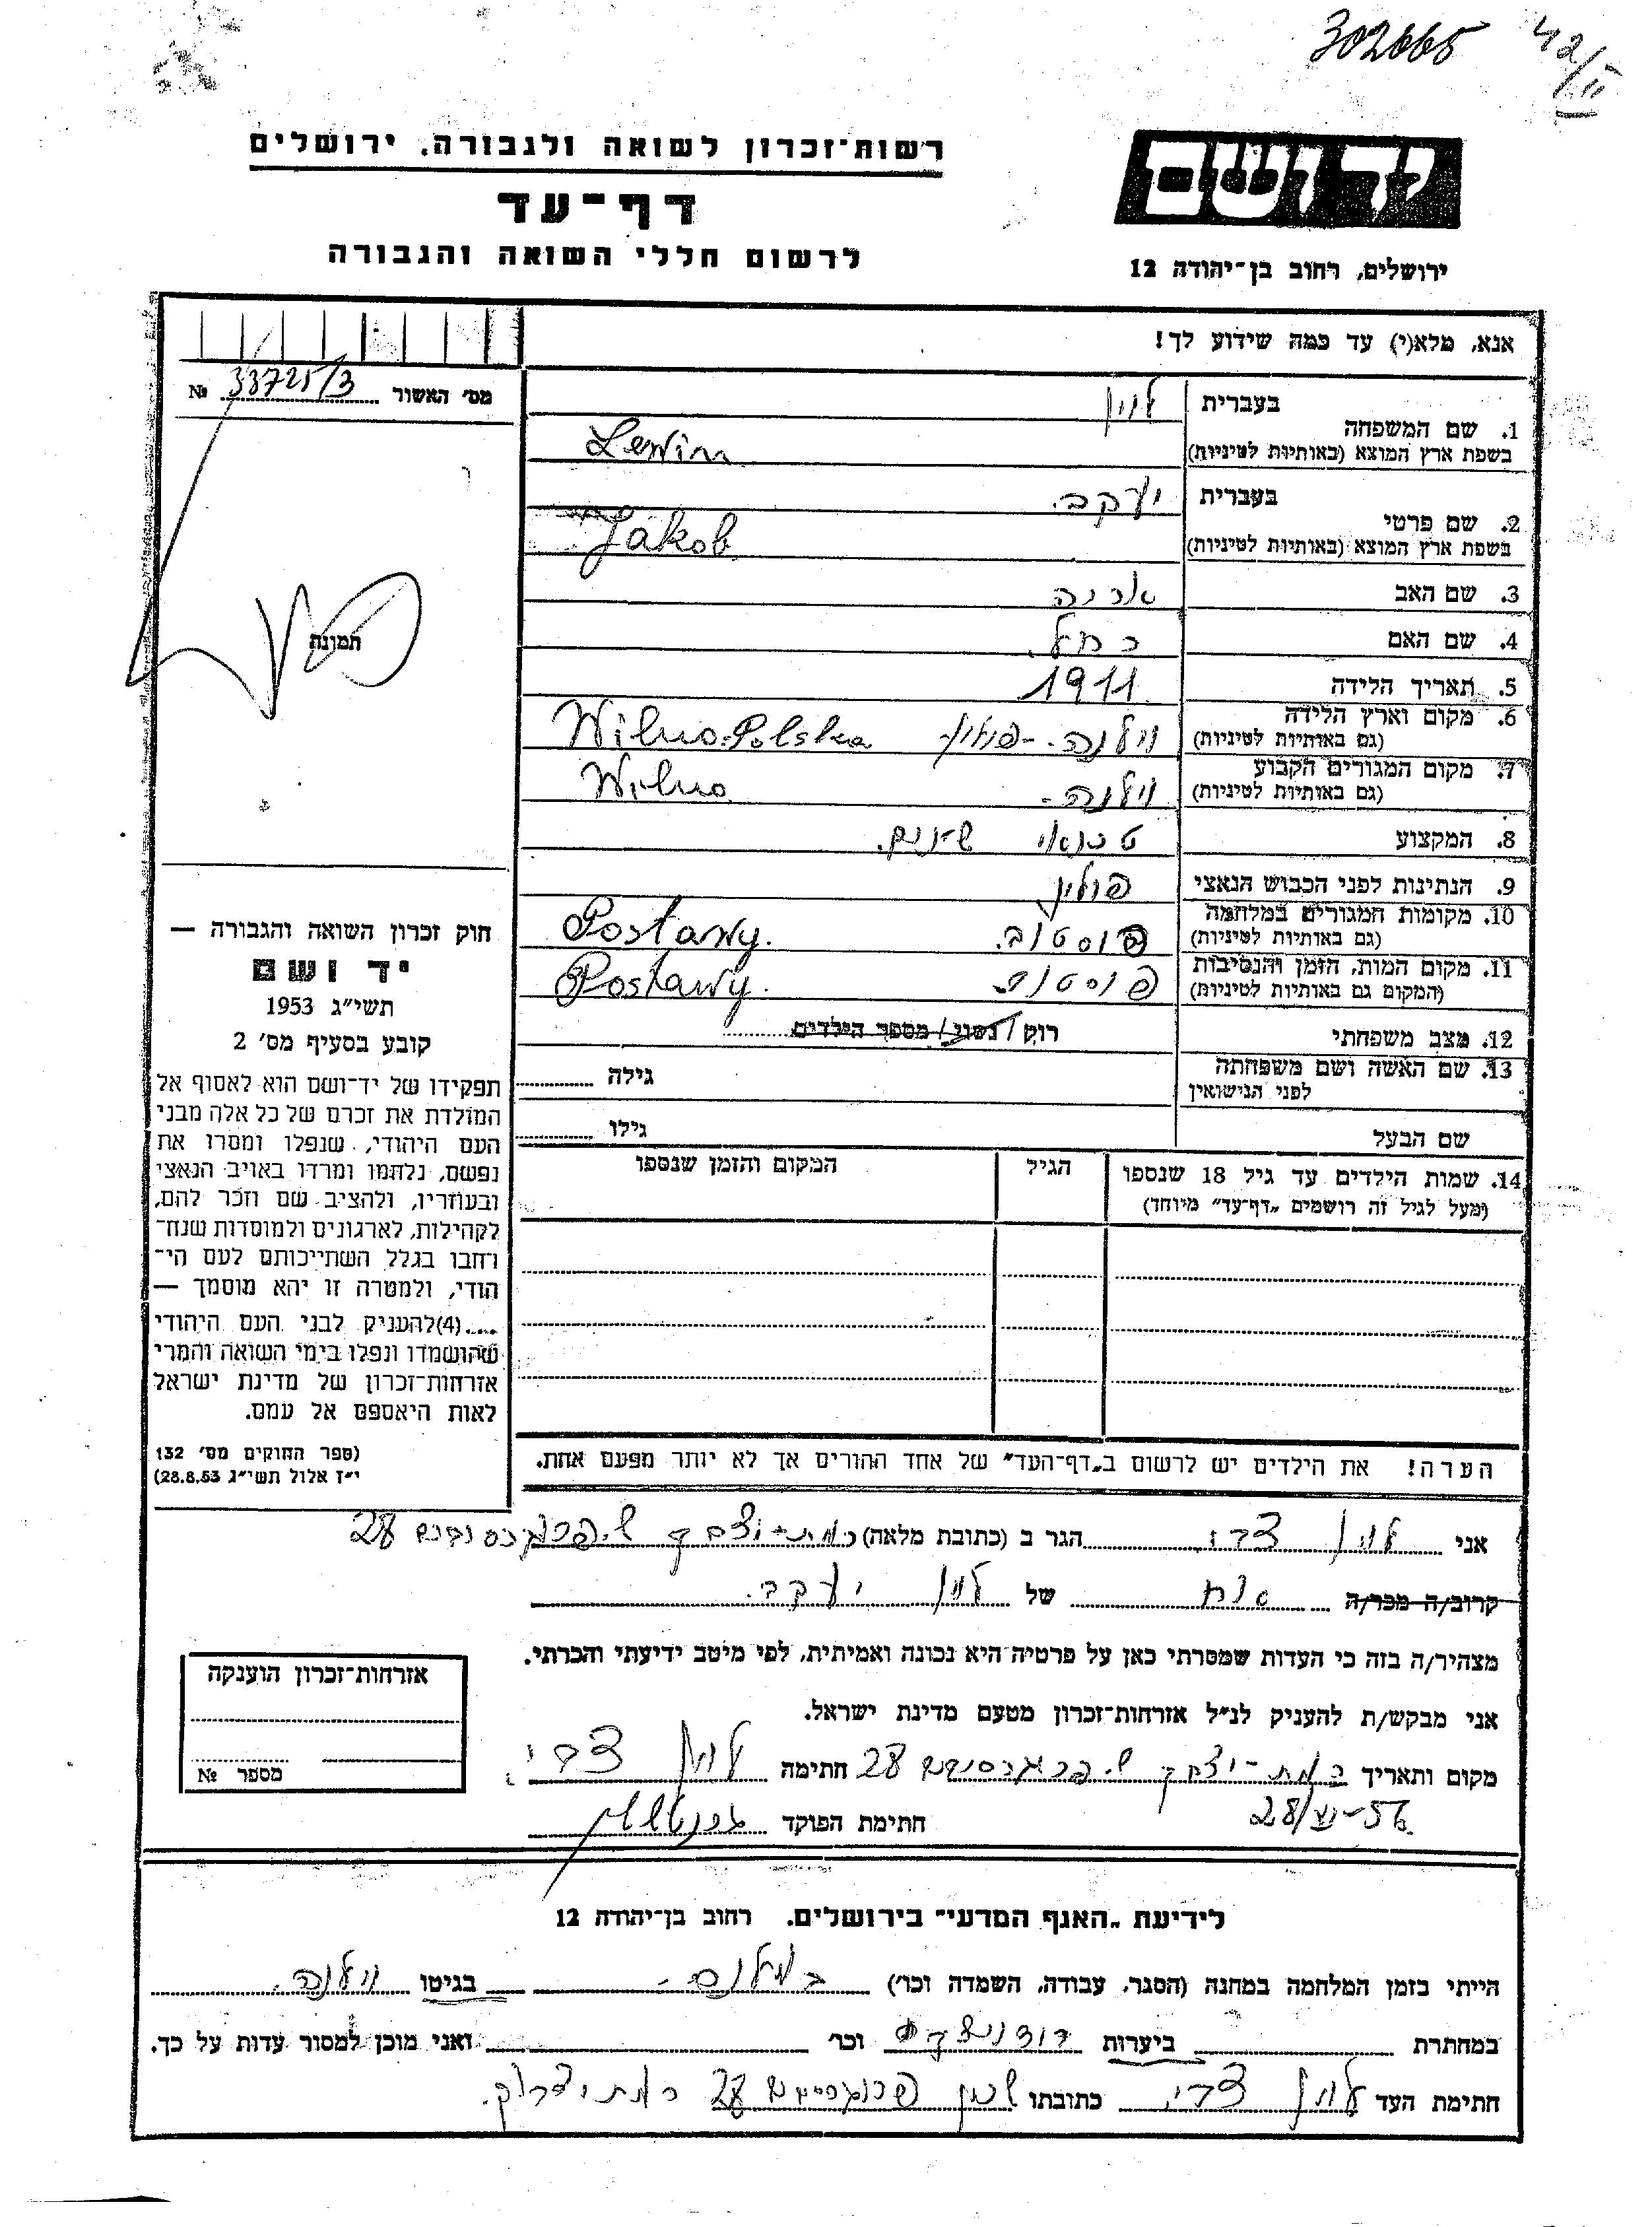 302665 42/II
רשות־זכרון לשואה ולגבורה, ירושלים
דף־עד
לרשום חללי השואה והגבורה
יד ושם
ירושלים, רחוב בן־יהודה 12
אנא, מלא(י) עד כמה שידוע לך!
מס׳ האשור 33725/3 №
תמונה
1. שם המשפחה בעברית לוין
בשפת ארץ המוצא (באותיות לטיניות) Lewin
2. שם פרטי בעברית יעקב.
בשפת ארץ המוצא (באותיות לטיניות) Jakob
3. שם האב אריה
4. שם האם רחל
5. תאריך הלידה 1911
6. מקום וארץ הלידה (גם באותיות לטיניות) וילנה - פולין - Wilno-Polska
7. מקום המגורים הקבוע (גם באותיות לטיניות) וילנה - Wilno
8. המקצוע טכנאי שינים.
9. הנתינות לפני הכבוש הנאצי פולין
10. מקומות המגורים במלחמה (גם באותיות לטיניות) פוסטוב. Postawy.
11. מקום המות, הזמן והנסיבות (המקום גם באותיות לטיניות) פוסטוב. Postawy.
12. מצב משפחתי רוק / נשוי / מספר הילדים
13. שם האשה ושם משפחתה לפני הנישואין גילה
שם הבעל גילו
14. שמות הילדים עד גיל 18 שנספו (מעל לגיל זה רושמים „דף־עד״ מיוחד) הגיל המקום והזמן שנספו
חוק זכרון השואה והגבורה —
יד ושם
תשי״ג 1953
קובע בסעיף מס׳ 2
תפקידו של יד־ושם הוא לאסוף אל
המולדת את זכרם של כל אלה מבני
העם היהודי, שנפלו ומסרו את
נפשם, נלחמו ומרדו באויב הנאצי
ובעוזריו, ולהציב שם וזכר להם,
לקהילות, לארגונים ולמוסדות שנח־
רחבו בגלל השתייכותם לעם הי־
הודי, ולמטרה זו יהא מוסמך —
....(4)להעניק לבני העם היהודי
שהושמדו ונפלו בימי השואה והמרי
אזרחות־זכרון של מדינת ישראל
לאות היאספם אל עמם.
(ספר החוקים מס׳ 132
י״ז אלול תשי״ג 28.8.53)
הערה! את הילדים יש לרשום ב„דף־העד״ של אחד ההורים אך לא יותר מפעם אחת.
אני לוין צבי הגר ב (כתובת מלאה) רמת-יצחק 28
קרוב/ה מכר/ה אח של לוין יעקב.
מצהיר/ה בזה כי העדות שמסרתי כאן על פרטיה היא נכונה ואמיתית, לפי מיטב ידיעתי והכרתי.
אני מבקש/ת להעניק לנ״ל אזרחות־זכרון מטעם מדינת ישראל.
מקום ותאריך רמת-יצחק 28 חתימה לוין צבי
28/VI-56
חתימת הפוקד
אזרחות־זכרון הוענקה
מספר №
לידיעת „האגף המדעי״ בירושלים, רחוב בן־יהודה 12
הייתי בזמן המלחמה במחנה (הסגר, עבודה, השמדה וכר׳) בגיטו וילנה.
במחתרת ביערות רודניצקה וכר׳ ואני מוכן למסור עדות על כך.
חתימת העד לוין צבי כתובתו 28 רמת יצחק.